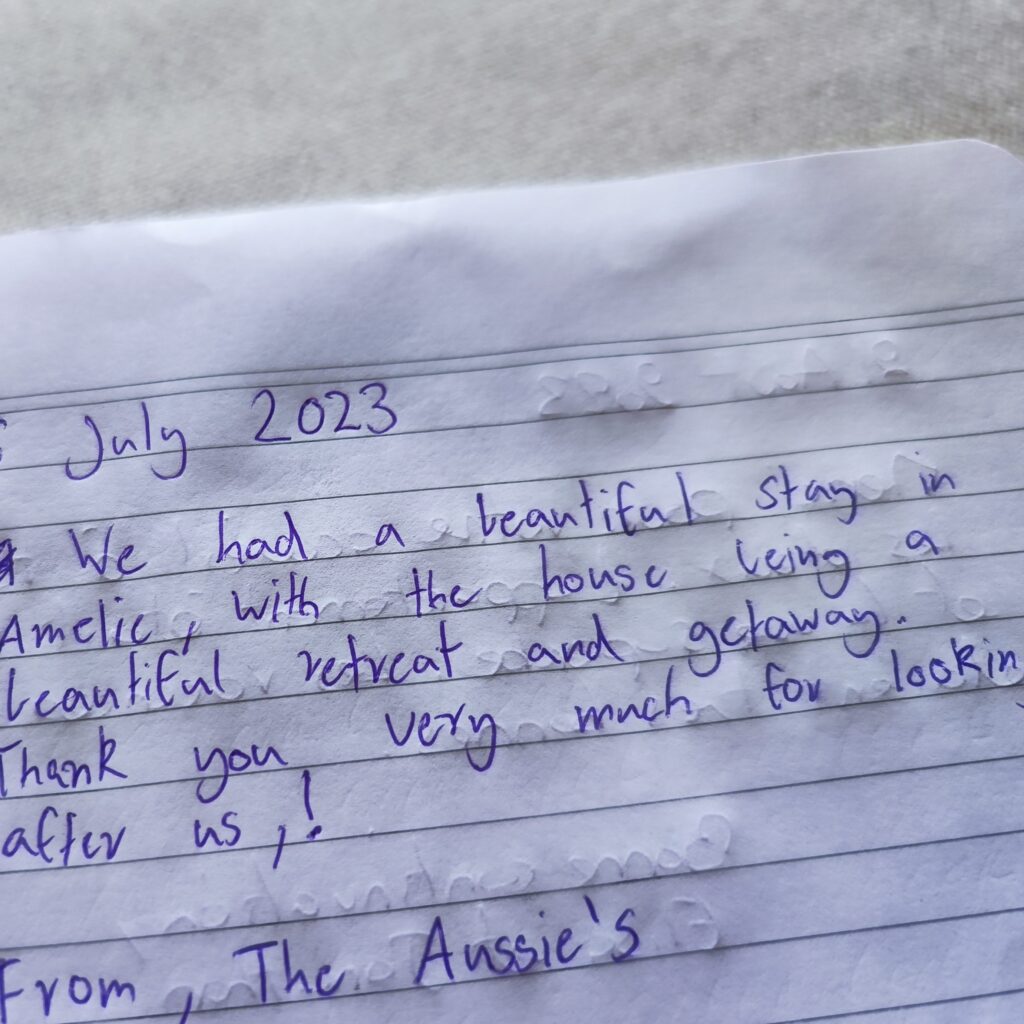 July 2023
We had a beautiful stay in
Amelie, with the house being a
beautiful retreat and getaway.
Thank you very much for lookin
after us,!
From, The Aussie's